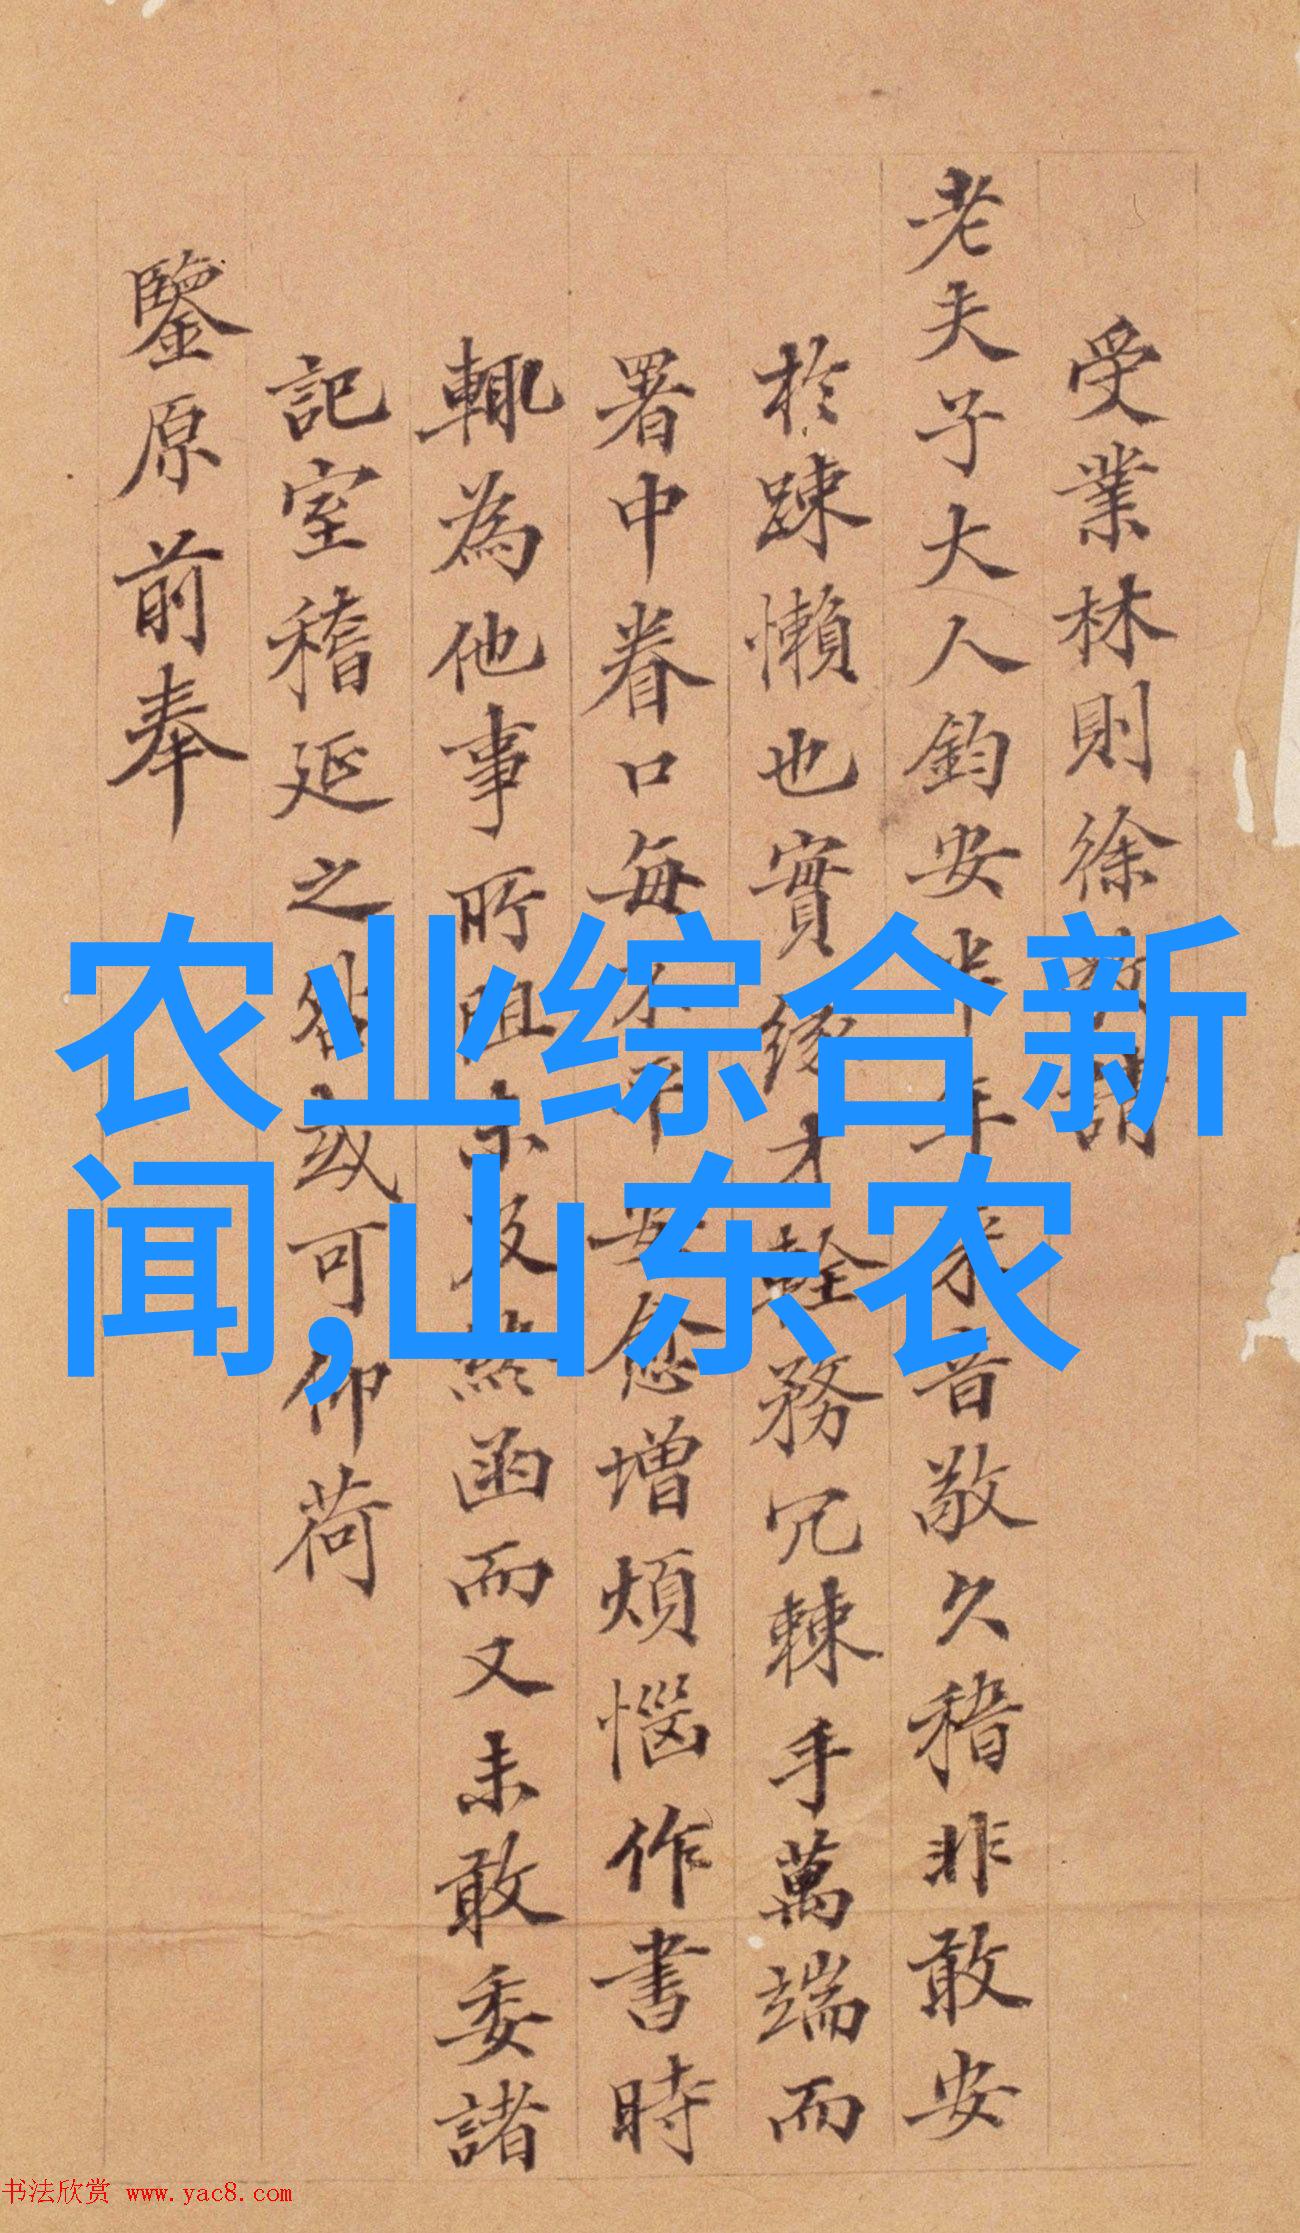 受業林則徐敬請
老夫子大人鈞安半年來音敬久稽非敢安
於踈懶也實緣才輇務冗棘手萬端而
署中眷口每不平安愈增煩惱作書時
輒為他事所阻未及終函而又未敢委諸
記室稽延之咎或可仰荷
鑒原前奉
农业综合新
闻,山东农
书法欣赏 www.yac8.com